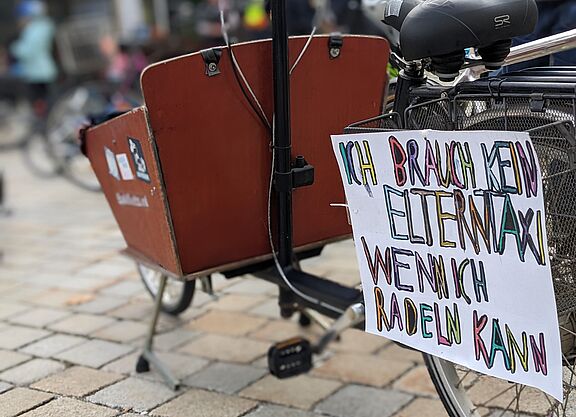 ICH BRAUCH KEIN
ELTERNTAXI
WENN ICH
RADELN KANN
SR